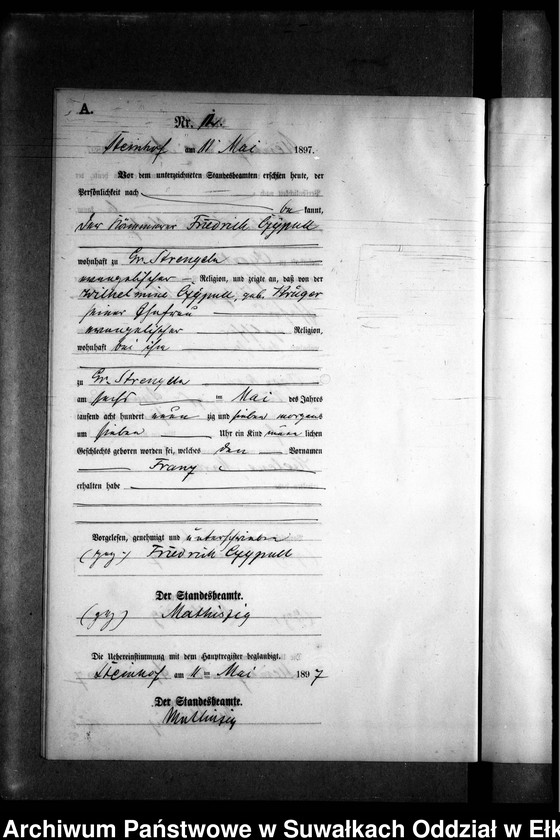 A.
Nr.
Steinhof am 11 Mai 1897.
Vor dem unterzeichneten Standesbeamten erschien heute, der
Persönlichkeit nach
be kannt,
der Kämmerer Friedrich Czypull
wohnhaft zu Gr. Strengeln
evangelischer Religion, und zeigte an, daß von der
Wilhelmine Czypull, geb. Krüger
seiner Ehefrau
evangelischer Religion,
wohnhaft bei ihm
zu Gr. Strengeln
am sechs im Mai des Jahres
tausend acht hundert neun zig und sieben morgens
um sieben Uhr ein Kind männ lichen
Geschlechts geboren worden sei, welches den Vornamen
Franz
erhalten habe
Vorgelesen, genehmigt und unterschrieben
(gez.) Friedrich Czypull
Der Standesbeamte.
(gez)
Die Uebereinstimmung mit dem Hauptregister beglaubigt.
Steinhof am 11 Mai 1897
Der Standesbeamte.
Archiwum Państwowe w Suwałkach Oddział w Ełk